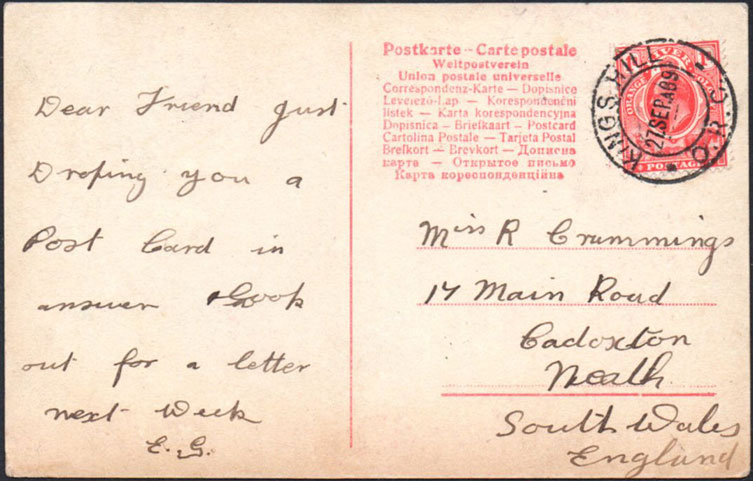 Postkarte – Carte postale
Weltpostverein
Union postale universelle
Correspondenz-Karte – Dopisnice
Levelező-Lap – Korespondenční
lístek – Karta korespondencyjna
Dopisnica – Brielkaart – Postcard
Cartolina Postale – Tarjeta Postal
Brefkort – Brevkort – Дописна
карта – Открытое письмо
Карта кореспонденційна
KINGS HILL
27 SEP A 09
O.R.C.
ORANGE RIVER COLONY
POSTAGE
Dear Friend Just
Droping you a
Post Card in
answer Look
out for a letter
next Week
E.G.
Miss R Crummings
17 Main Road
Cadoxton
Neath
South Wales
England